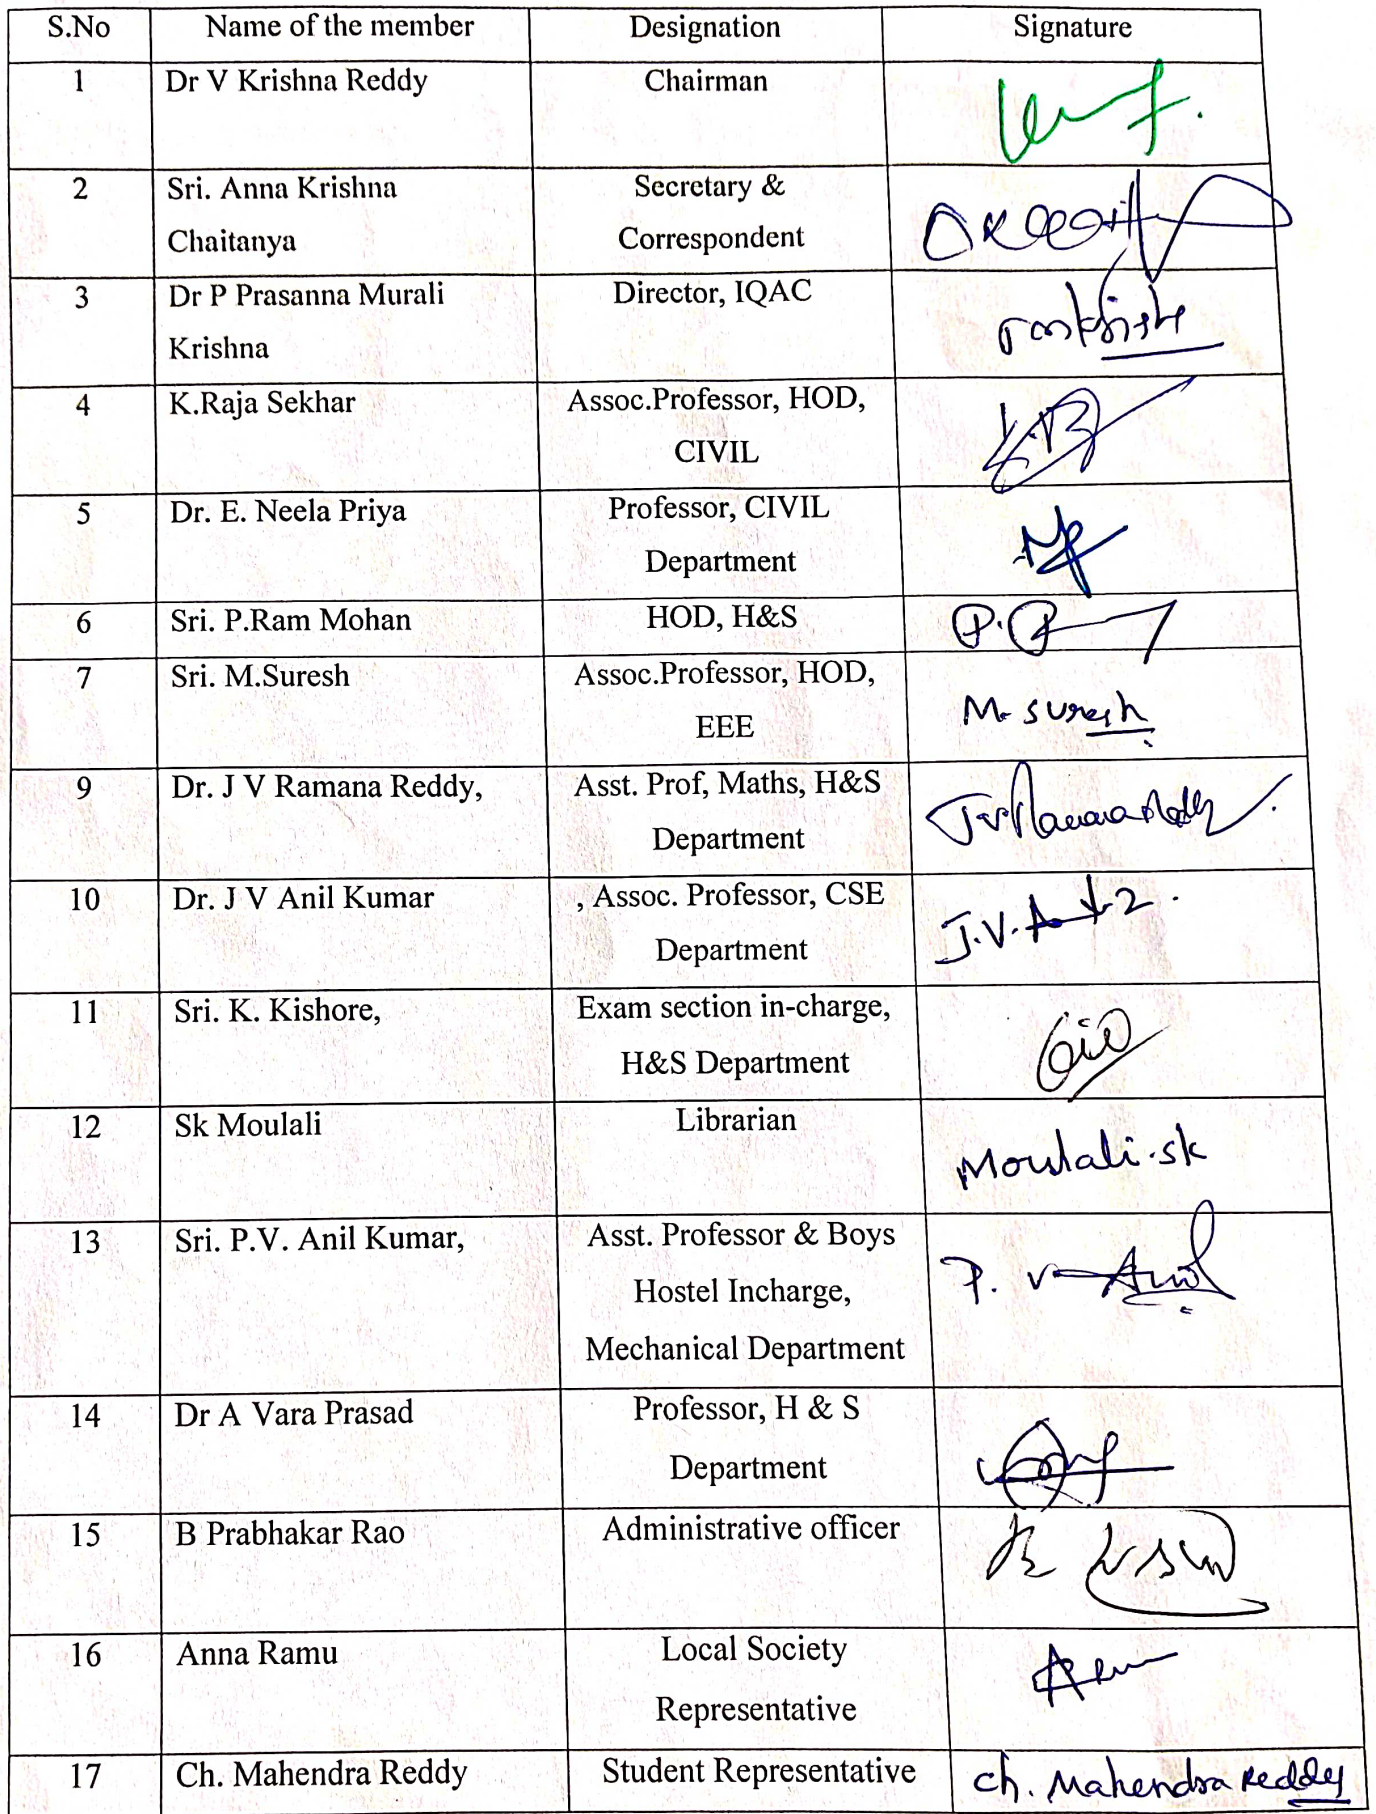 S.No Name of the member Designation Signature
1 Dr V Krishna Reddy Chairman
2 Sri. Anna Krishna Secretary &
Chaitanya Correspondent
3 Dr P Prasanna Murali Director, IQAC
Krishna
4 K.Raja Sekhar Assoc.Professor, HOD,
CIVIL
5 Dr. E. Neela Priya Professor, CIVIL
Department
6 Sri. P.Ram Mohan HOD, H&S
7 Sri. M.Suresh Assoc.Professor, HOD,
EEE M. Suresh
9 Dr. J V Ramana Reddy, Asst. Prof, Maths, H&S
Department J.V.Ramana Reddy.
10 Dr. J V Anil Kumar , Assoc. Professor, CSE
Department
11 Sri. K. Kishore, Exam section in-charge,
H&S Department
12 Sk Moulali Librarian
Moulali.sk
13 Sri. P.V. Anil Kumar, Asst. Professor & Boys
Hostel Incharge, P. V Anil
Mechanical Department
14 Dr A Vara Prasad Professor, H & S
Department
15 B Prabhakar Rao Administrative officer
16 Anna Ramu Local Society
Representative
17 Ch. Mahendra Reddy Student Representative Ch. Mahendra Reddy